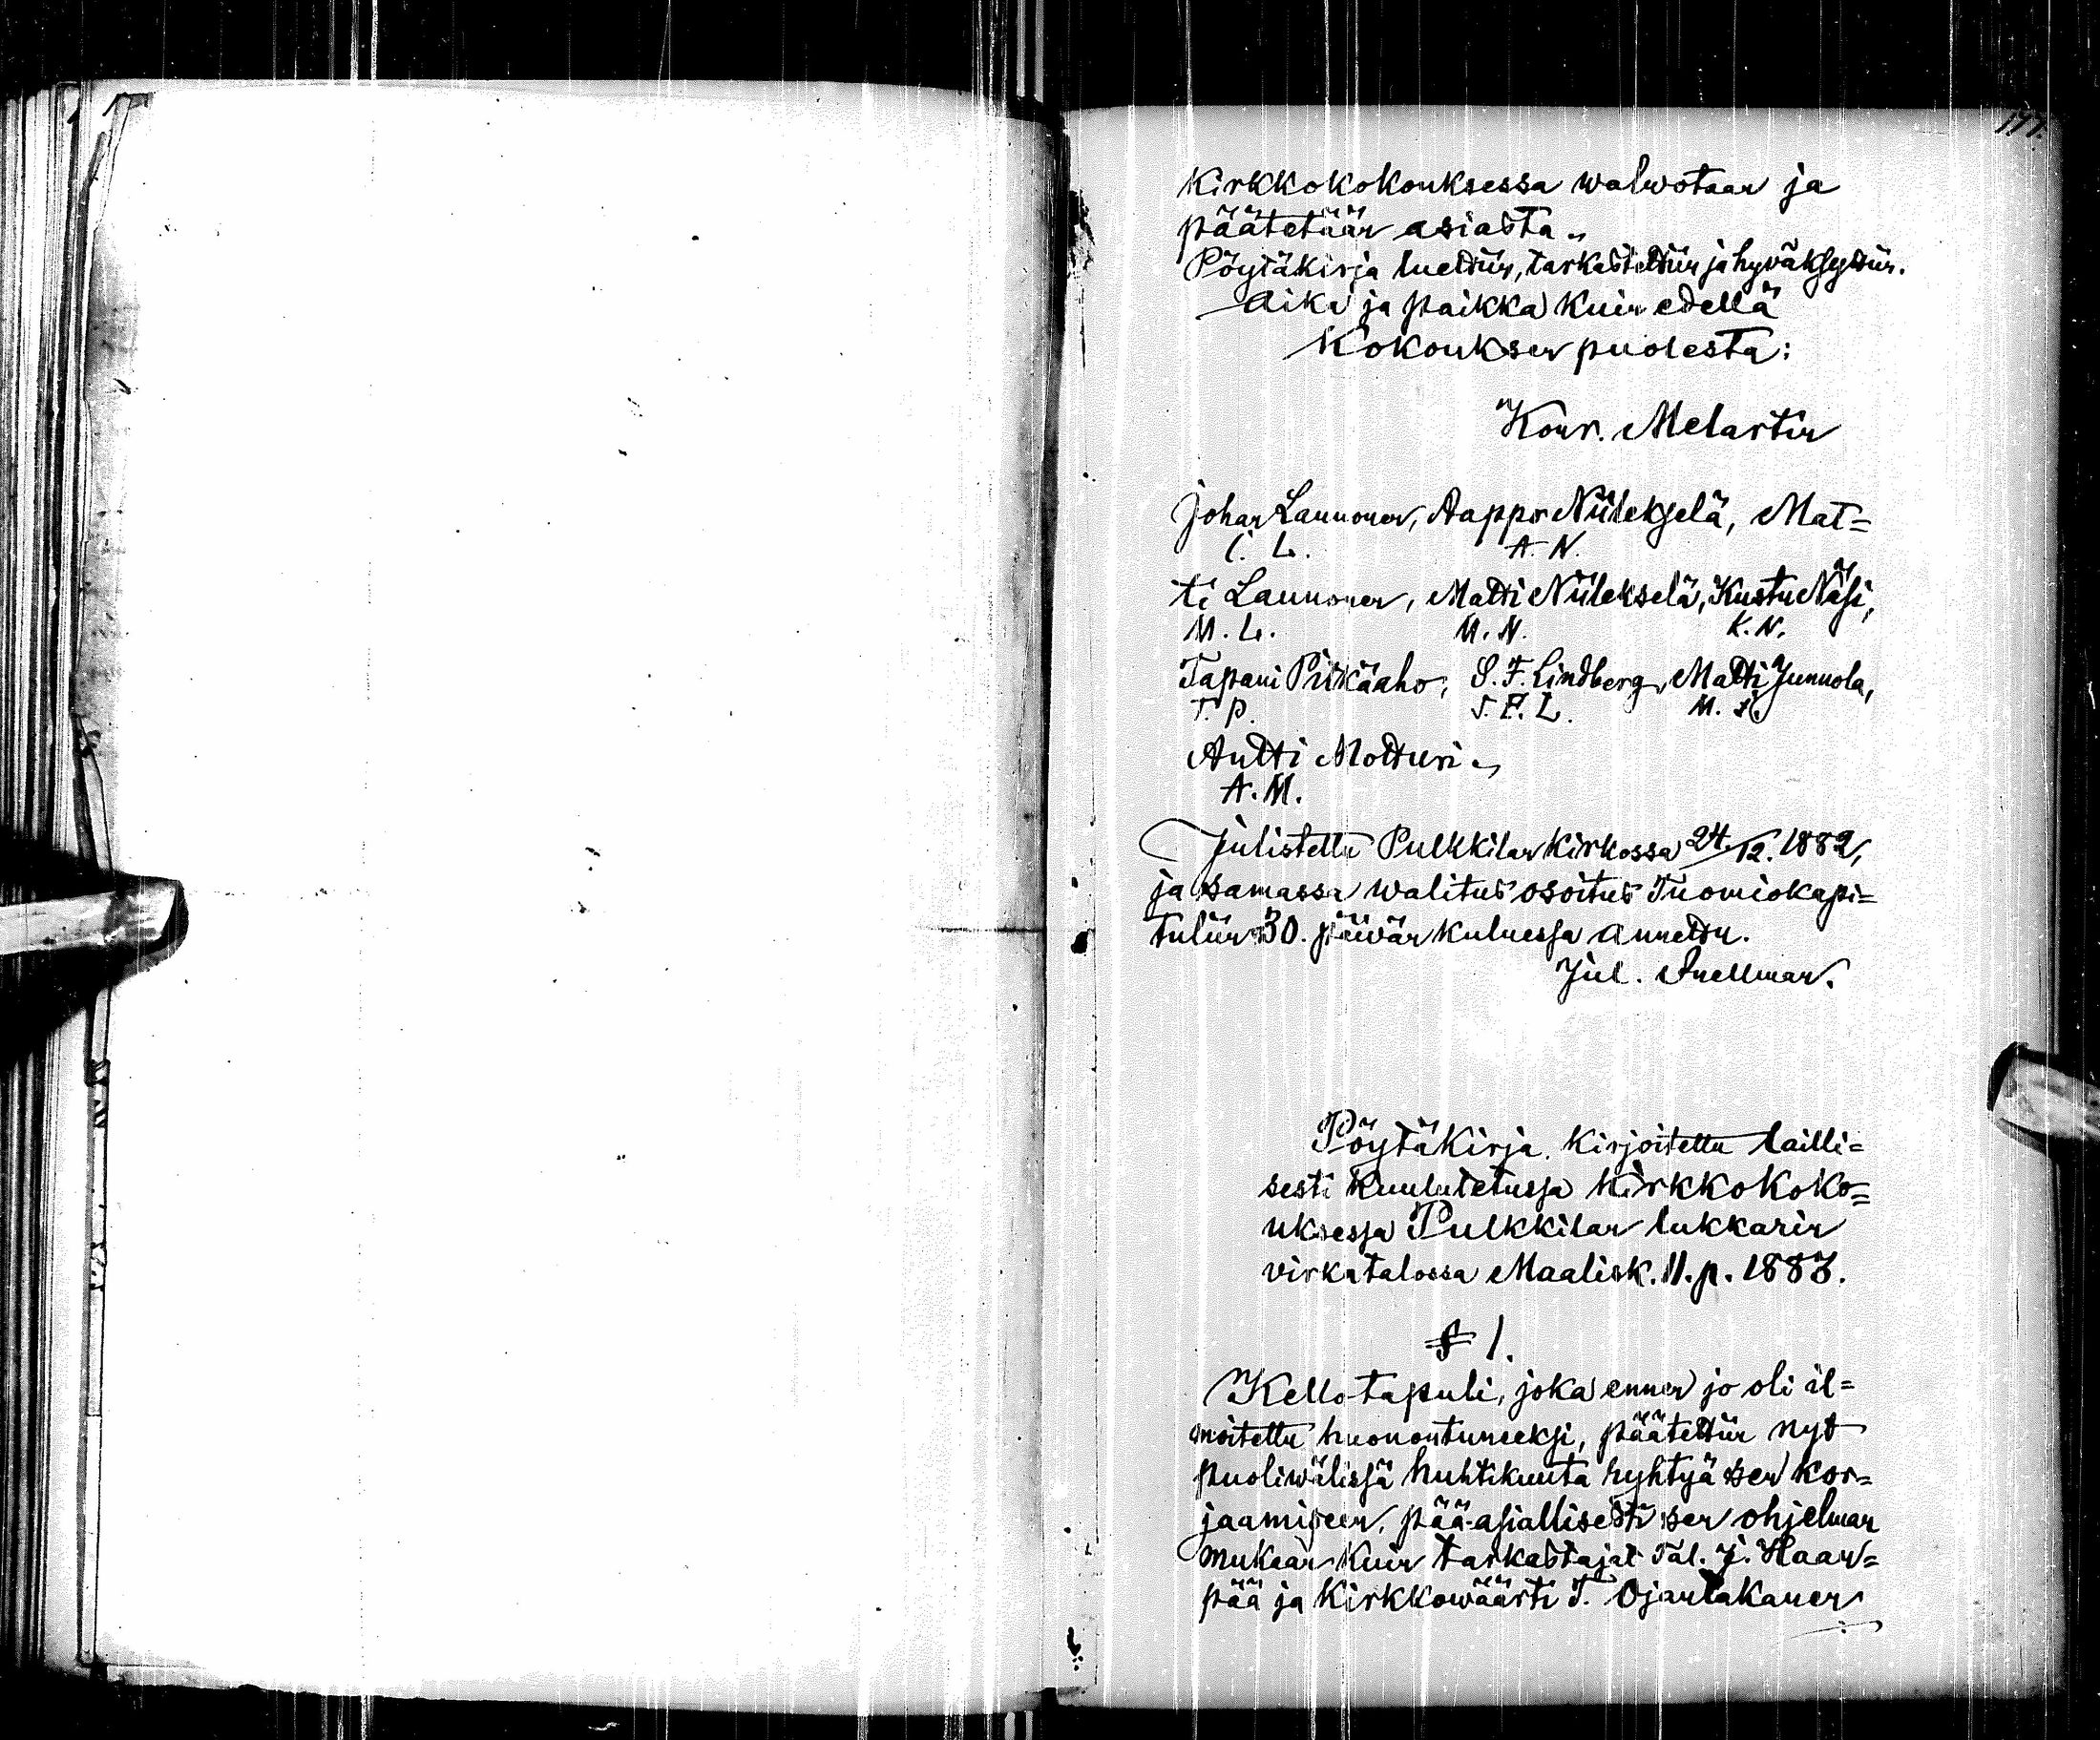 177.
kirkkokokouksessa walwotaan ja
päätetään asiasta.
Pöytäkirja luettiin, tarkastettiin ja hyväksyttiin.
Aika ja paikka kuin edellä
Kokouksen puolesta:
Konr. Melartin
Johan Launonen, Aappo Niilekselä, Mat=
J. L. A. N.
ti Launonen, Matti Niilekselä, Kustu Näsi,
M. L. M. N. K. N.
Tapani Piikäaho, S. F. Lindberg, Matti Junnola,
T. P. S. F. L. M. J.
Antti Motturi.
A. M.
Julistettu Pulkkilan kirkossa 24/12. 1882,
ja samassa walitus osoitus Tuomiokapi=
tuliin 30. päivän kuluessa annettu.
Jul. Snellman.
Pöytäkirja, kirjoitettu lailli=
sesti kuulutetussa kirkkokoko=
uksessa Pulkkilan lukkarin
virkatalossa Maalisk. 11. p. 1883.
§ 1.
Kellotapuli, joka ennen jo oli il=
moitettu huonontuneeksi, päätettiin nyt
puoliwälissä huhtikuuta ryhtyä sen kor=
jaamiseen, pää-asiallisesti sen ohjelman
mukaan kuin tarkastajat Tal. J. Haan=
pää ja kirkkowäärti T. Ojantakanen